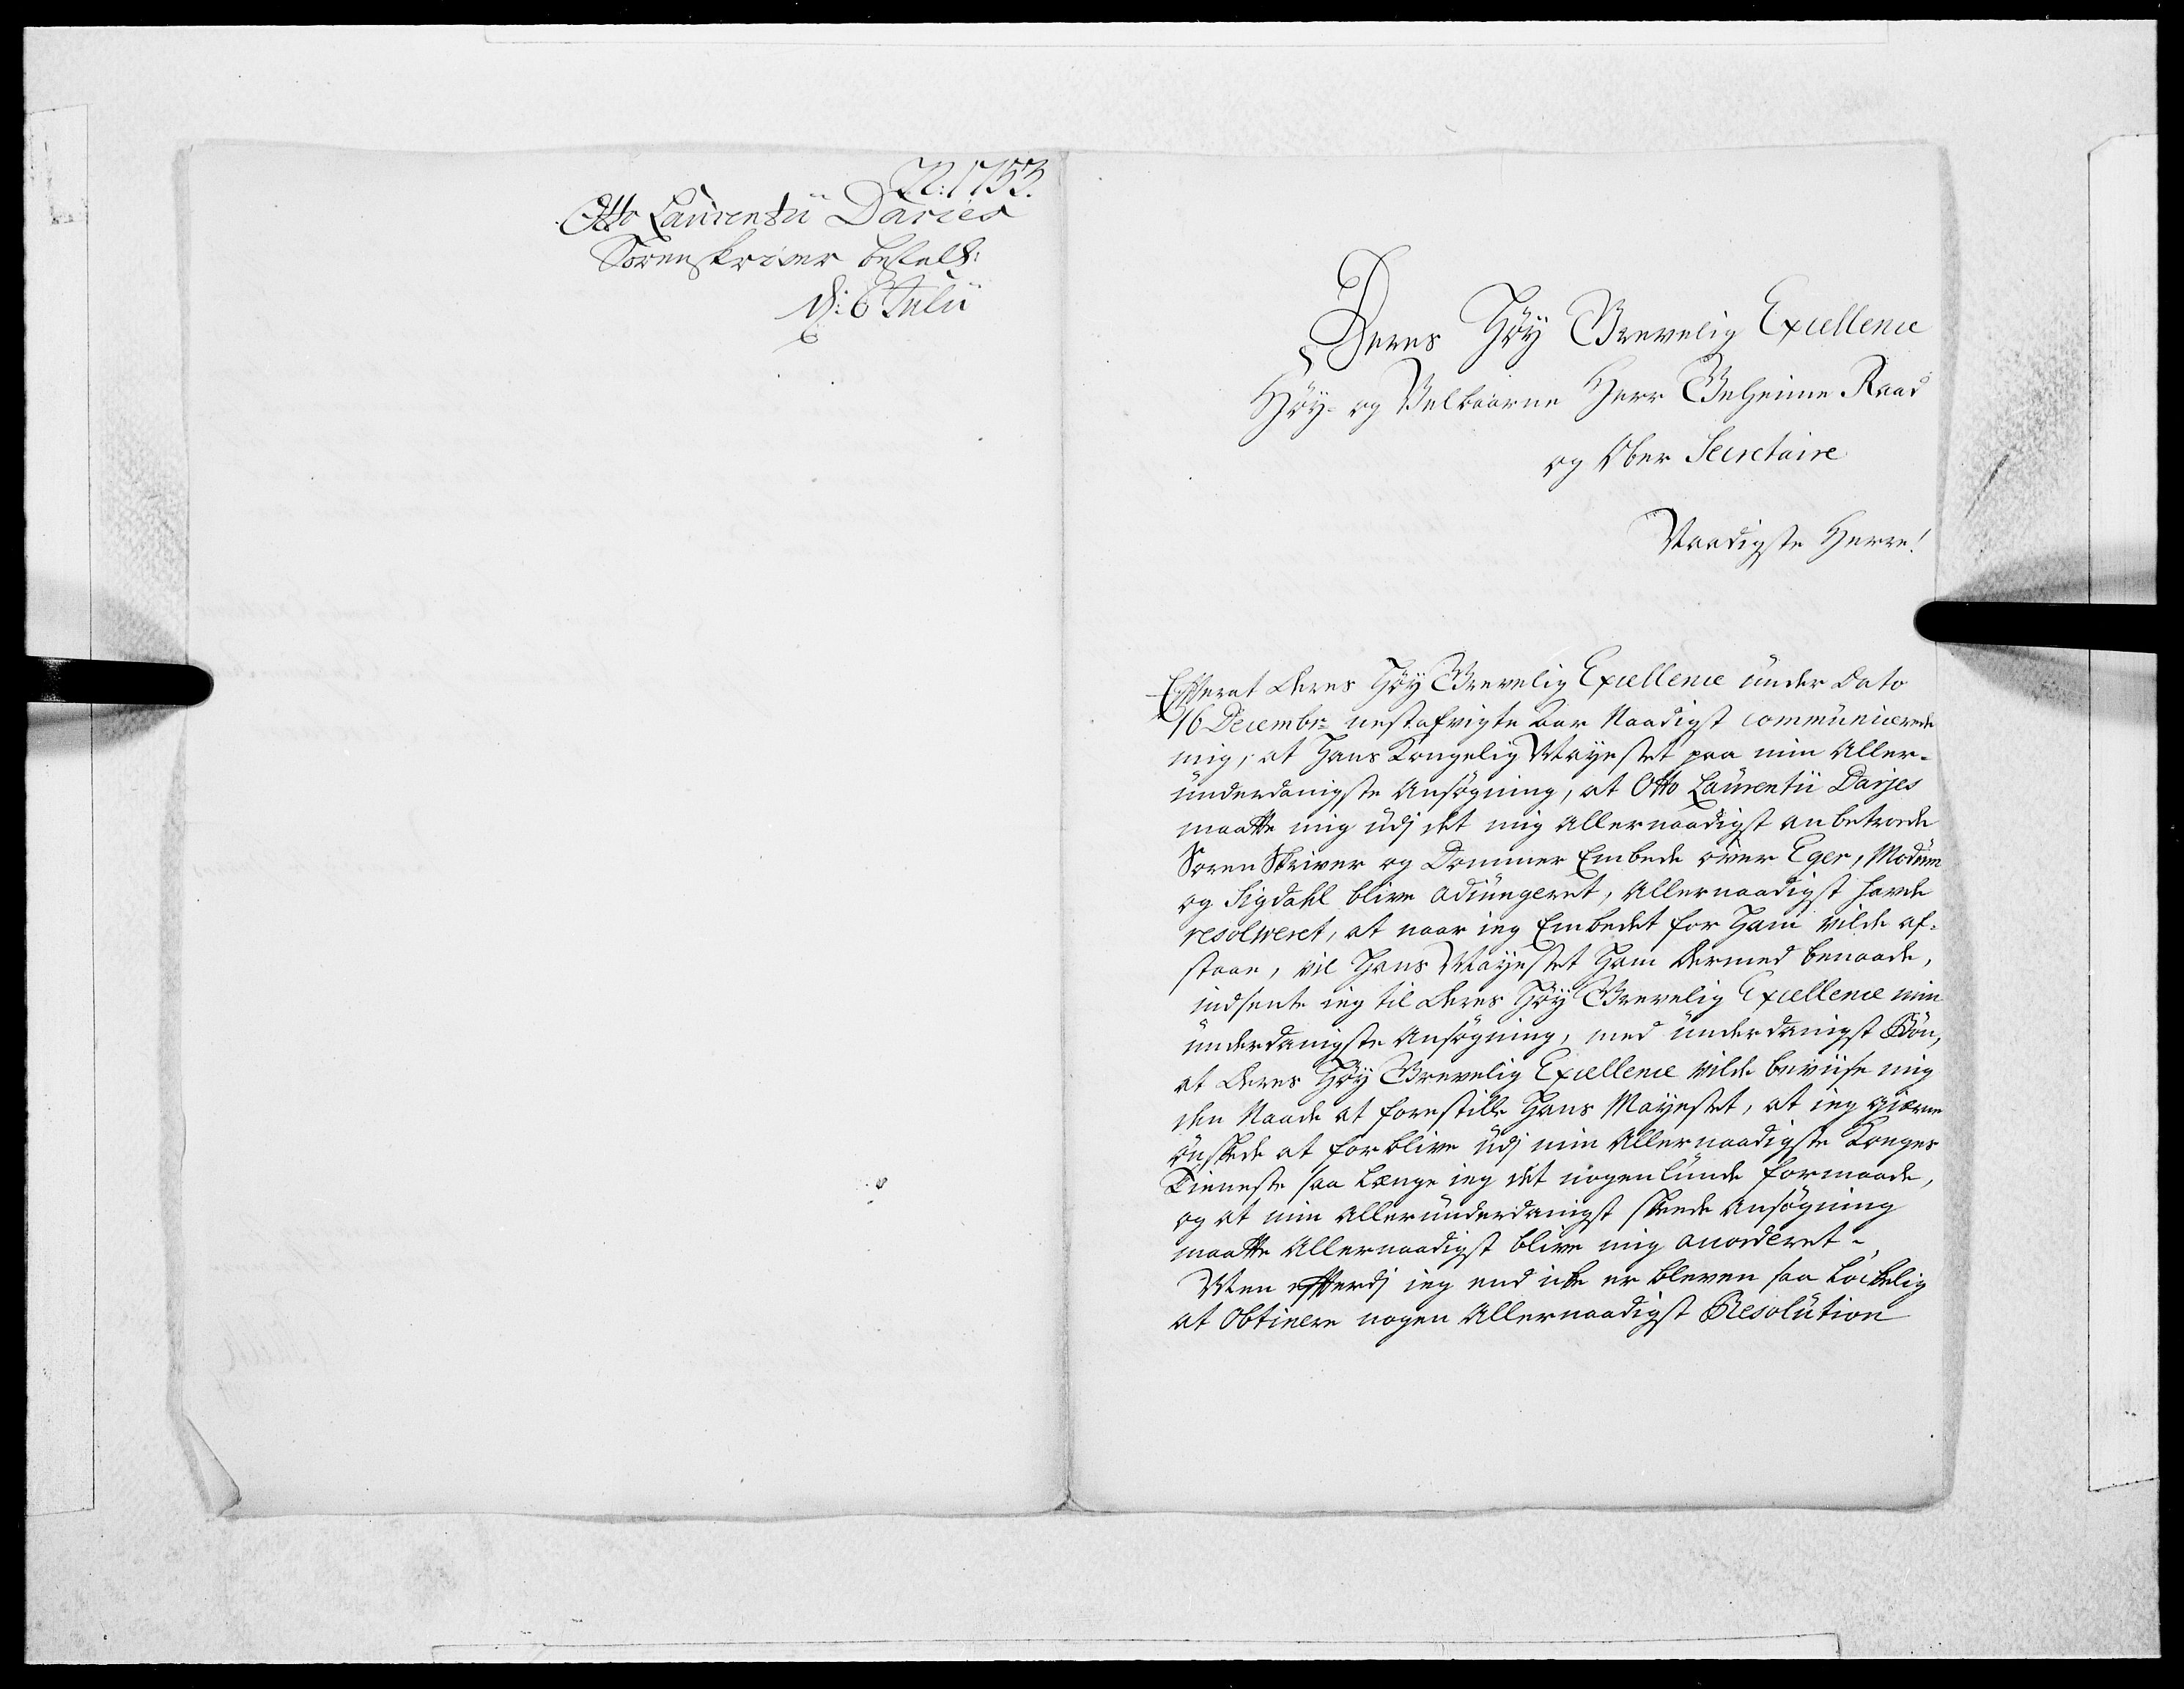 N: 1753.
Otto Laurentii Daries
Sorenskriver bestall:
d: 6 Julii
Deres Høy Grevelig Excellence
Høy- og Velbaarne Herr Geheime Raad
og Ober Secretaire
Naadigste Herre!
Efterat Deres Høy Grevelig Excellence under Dato
16 Decembr: nestafvigte Aar Naadigst communicerede
mig, at Hans Kongelig Mayestet paa min Aller-
underdanigste Ansøgning, at Otto Laurentii Darjes
maatte mig udj det mig Allernaadigst anbetroede
Soren Skriver og Dommer Embede over Eger, Modum
og Sigdahl blive adjungeret, Allernaadigst havde
resolveret, at naar ieg Embedet for Ham vilde af-
staae, vil Hans Mayestet Ham dermed benaade,
indsente ieg til Deres Høy Grevelig Excellence min
underdanigste Ansøgning, med underdanigst Bøn,
at Deres Høy Grevelig Excellence vilde beviise mig
den Naade at forestille Hans Mayestet, at ieg gierne
ønskede at forblive udj min Allernaadigste Konges
Tieneste saa længe ieg det nogenlunde formaade,
og at min Allerunderdanigst skeede Ansøgning
maatte Allernaadigst blive mig accorderet.
Men efterdj ieg end icke er bleven saa Løckelig
at Obtinere nogen Allernaadigst Resolution